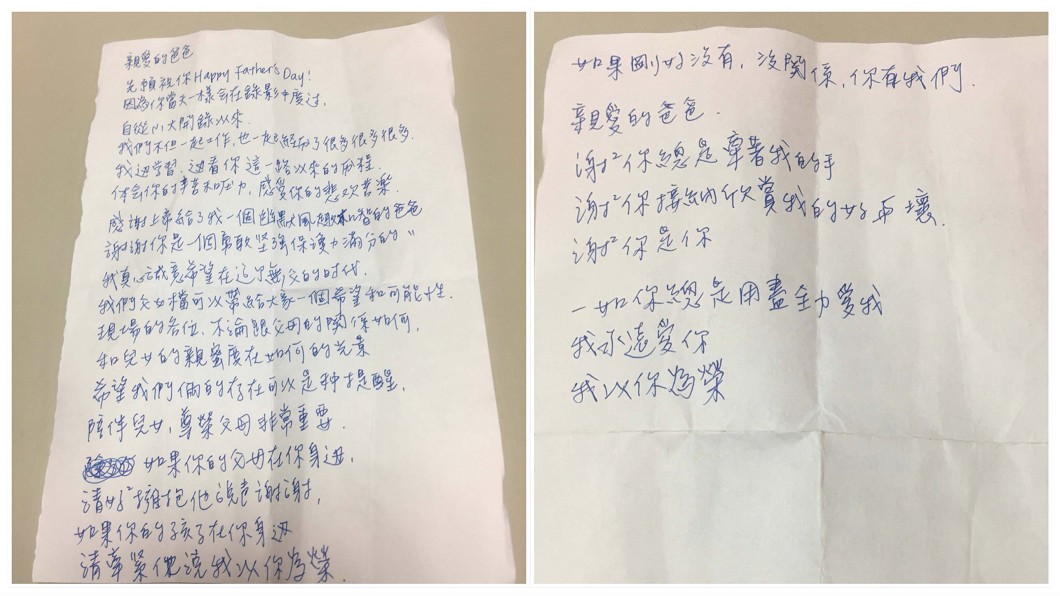 親愛的爸爸
先願祝你Happy Father's Day!
因為你當天一樣會在錄影中度过,
自從小大開錄以來.
我們不但一起工作,也一起經历了很多很多很多.
我边学習.边看你這一路以來的历程.
体会你的辛苦和压力,感受你的悲欢苦樂.
感谢上帝給了我一個幽默風趣机智的爸爸
謝謝你是一個勇敢坚强保護力滿分的"
我真心誠意希望在这个無父的时代.
我們父女檔可以帶給大家一個希望和可能性.
現場的各位,不論跟父母的関係如何,
和兒女的親蜜度在如何的光景
希望我們俩的存在可以是种提醒,
陪伴兒女,尊榮父母非常重要.
如果你的父母在你身边,
請好²擁抱他說声謝謝,
如果你的孩子在你身边
請牽緊他说我以你為榮.
如果剛好沒有,沒関係,你有我們.
親愛的爸爸.
謝²你總是牽著我的手
謝²你接納欣賞我的好與壞.
謝²你是你
一如你總是用盡全力愛我
我永遠愛你
我以你為榮